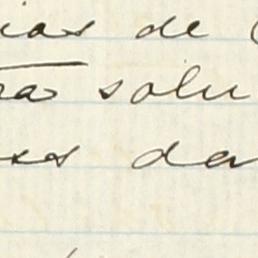 ias de
ra solu
ess da